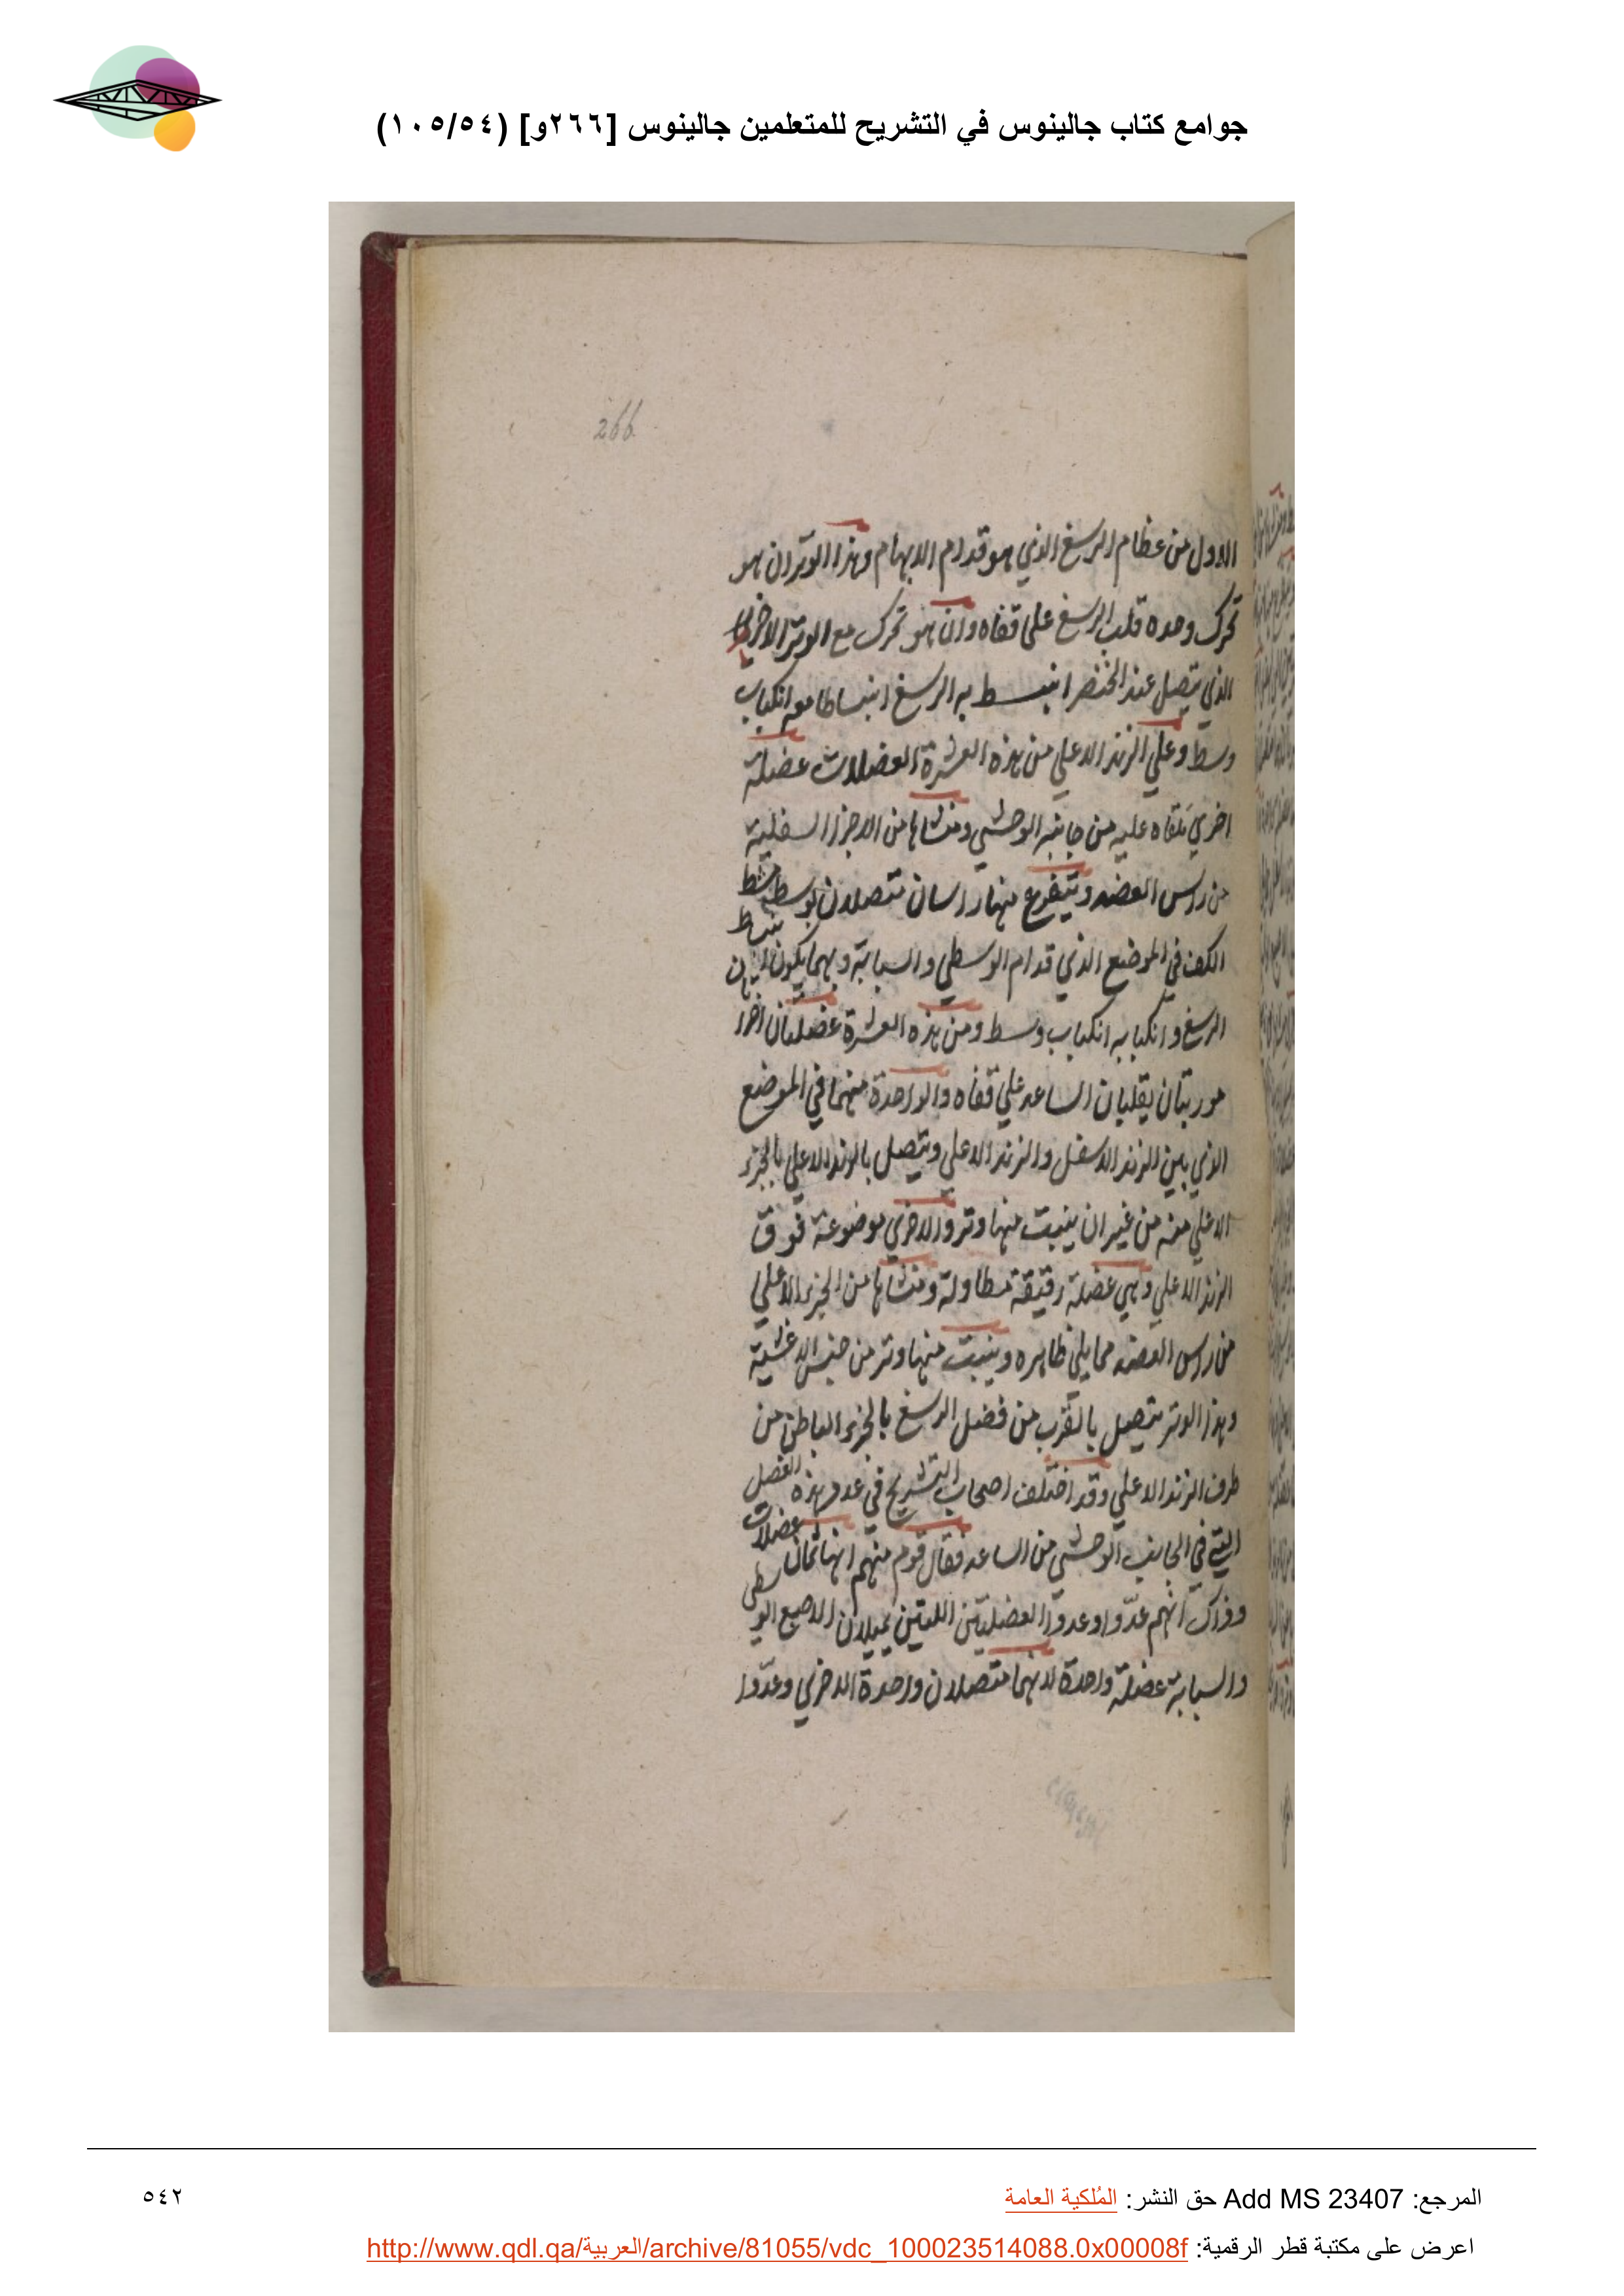 جوامع كتاب جالينوس في التشريح للمتعلمين جالينوس [٢٦٦و] (١٠٥/٥٤)
266
الاول من عظام الرسغ الذي هو قدام الابهام وهذا الوتر ان هو
تحرك وحده قلب الرسغ على قفاه وان هو تحرك مع الوتر الاخر
الذي يتصل عند الخنصر انبسط به الرسغ انبساطا معه انكباب
وسط وعلي الزند الاعلي من هذه العشرة العضلات عضلة
اخري ملقاه عليه من جانبه الوحشي ومنشاها من الاجزا السفلية
من راس العضد ويتفرع منها راسان متصلان بوسط مشط
الكف في الموضع الذي قدام الوسطي والسبابة وبهما يكون انبساط
الرسغ وانكبابه انكباب وسط ومن هذه العشرة عضلتان اخرا
موربتان يقلبان الساعد علي قفاه والواحدة منهما في الموضع
الذي بين الزند الاسفل والزند الاعلي ويتصل بالزند الاعلي بالجزء
الاعلي منه من غير ان ينبت منها وتر والاخري موضوعة فوق
الزند الاعلي وهي عضلة رقيقة متطاولة ومنشاها من الجزء الاعلي
من راس العضد مما يلي ظاهره وينبت منها وتر من جنس الاغشية
وهذا الوتر يتصل بالقرب من فضل الرسغ بالجزء الباطن من
طرف الزند الاعلي وقد اختلف اصحاب التشريح في عدد هذه العضل
التي في الجانب الوحشي من الساعد فقال قوم منهم انها ثمان عضلات
وذاك انهم عدّوا وعدوا العضلتين اللتين يميلان الاصبع الوسطي
والسبابة عضلة واحدة لانهما متصلان واحدة الاخري وعدّوا
٥٤٢
المرجع: Add MS 23407 حق النشر: المُلكية العامة
اعرض على مكتبة قطر الرقمية: http://www.qdl.qa/العربية/archive/81055/vdc_100023514088.0x00008f